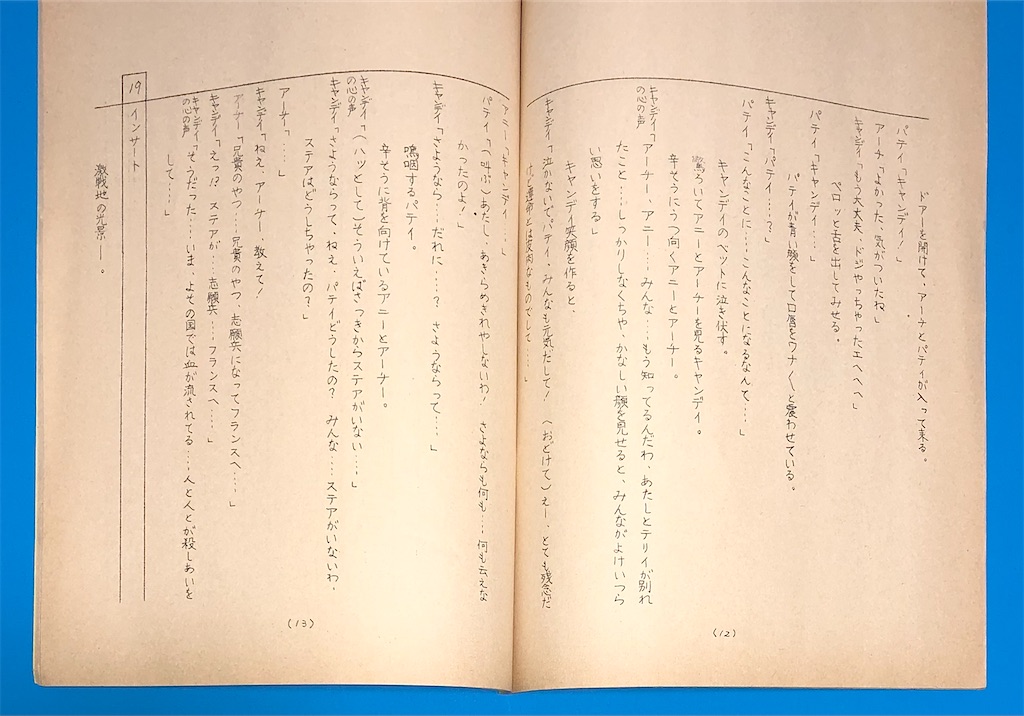 ドアーを開けて、アーチとパティが入って来る。
パティ「キャンディ！」
アーチ「よかった、気がついたね」
キャンディ「もう大丈夫、ドジやっちゃったエヘヘヘ」
ペロッと舌を出してみせる。
パティ「キャンディ……」
パティが青い顔をして口唇をワナ〱と震わせている。
キャンディ「パティ……？」
パティ「こんなことに……こんなことになるなんて……」
キャンディのベットに泣き伏す。
驚ろいてアニーとアーチーを見るキャンディ。
辛そうにうつ向くアニーとアーチー。
キャンディの心の声「アーチー、アニー……みんな……もう知ってるんだわ、あたしとテリィが別れ
たこと……しっかりしなくちゃ、かなしい顔を見せると、みんながよけいつら
い思いをする」
キャンディ笑顔を作ると、
キャンディ「泣かないで。パティ、みんなも元気だして！（おどけて）えー、とても残念だ
けど運命とは皮肉なものでして……」
(12)
アニー「キャンディ……」
パティ「（叫ぶ）あたし、あきらめきれやしないわ！ さよならも何も……何も云えな
かったのよ！」
キャンディ「さようなら……だれに……？ さようならって……」
嗚咽するパティ。
辛そうに背を向けているアニーとアーチー。
キャンディの心の声「（ハッとして）そういえばさっきからステアがいない……」
キャンディ「さようならって、ねえ、パティどうしたの？ みんな……ステアがいないわ、
ステアはどうしちゃったの？」
アーチー「……」
キャンディ「ねえ、アーチー、教えて！
アーチー「兄貴のやつ……兄貴のやつ、志願兵になってフランスへ……」
キャンディ「えっ!? ステアが……志願兵……フランスへ……」
キャンディの心の声「そうだった……いま、よその国では血が流されてる……人と人とが殺しあいを
して……」
19 インサート
激戦地の光景―。
(13)